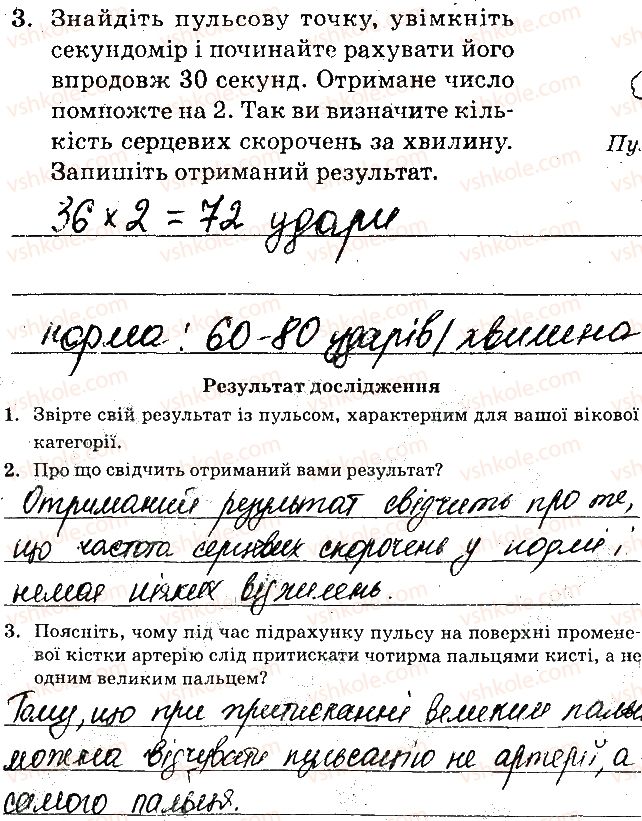 3. Знайдіть пульсову точку, увімкніть
секундомір і починайте рахувати його
впродовж 30 секунд. Отримане число
помножте на 2. Так ви визначите кіль-
кість серцевих скорочень за хвилину.
Пу.
Запишіть отриманий результат.
36 х 2 = 72 удари
норма: 60-80 ударів/хвилина
Результат дослідження
1. Звірте свій результат із пульсом, характерним для вашої вікової
категорії.
2. Про що свідчить отриманий вами результат?
Отриманий результат свідчить про те,
що частота серцевих скорочень у нормі і
немає ніяких відхилень.
3. Поясніть, чому під час підрахунку пульсу на поверхні промене-
вої кістки артерію слід притискати чотирма пальцями кисті, а не
одним великим пальцем?
Тому, що при притисканні великим паль
можна відчувати пульсацію не артерії, а
самого пальця.
vshkole.com